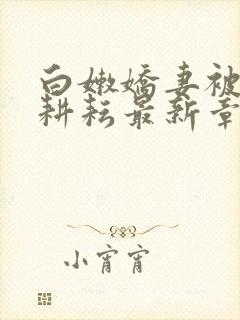 白嫩娇妻被
耕耘最新章
小宵宵